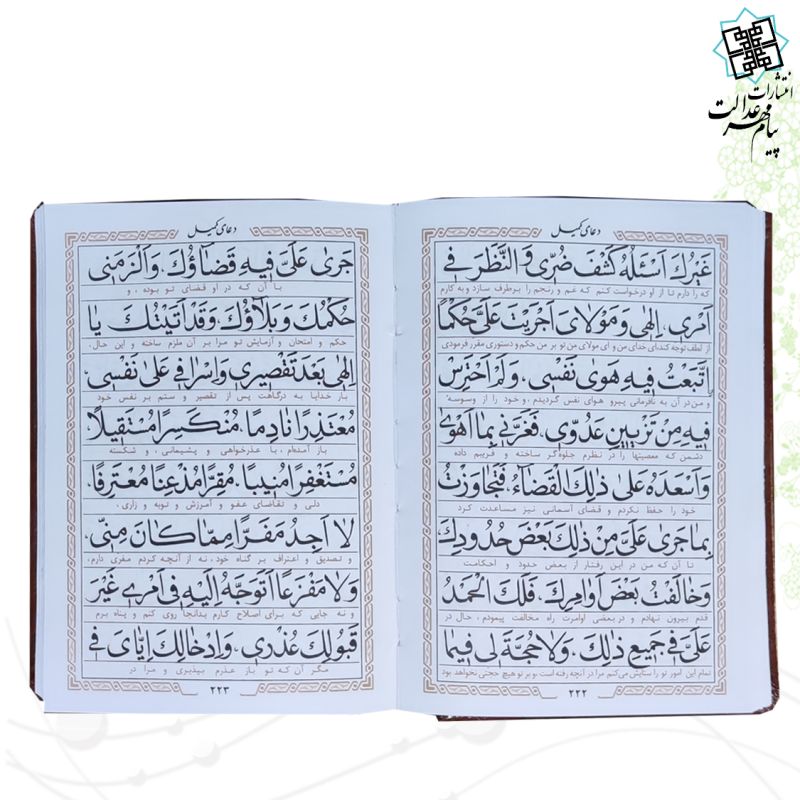 انتشارات
پیام مهر عدالت
دعای کمیل
غَيْرُكَ اَسْئَلُهُ كَشْفَ ضُرّى وَالنَّظَرَ فى
که را دارم تا از او درخواست کنم که غم و رنجم را برطرف سازد و به کارم
اَمْرى، اِلهى وَمَوْلاىَ اَجْرَيْتَ عَلَىَّ حُكْمًا
از لطف توجه کند ای خدای من و ای مولای من تو بر من حکم و دستوری مقرر فرمودی
اتَّبَعْتُ فيهِ هَوىٰ نَفْسى، وَلَمْ اَحْتَرِسْ
و من در آن به نافرمانی پیرو هوای نفس گردیدم، و خود را از وسوسه
فيهِ مِنْ تَزْيينِ عَدُوّى، فَغَرَّنى بِما اَهْوىٰ
دشمن که معصیتها را در نظرم جلوه‌گر ساخته و فریبم داده
وَاَسْعَدَهُ عَلىٰ ذٰلِكَ الْقَضآءُ، فَتَجاوَزْتُ
خود را حفظ نکردم و قضای آسمانی نیز مساعدت کرد
بِما جَرىٰ عَلَىَّ مِنْ ذٰلِكَ بَعْضَ حُدُودِكَ
تا آن که من در این رفتار از بعض حدود و احکامت
وَخالَفْتُ بَعْضَ اَوامِرِكَ، فَلَكَ الْحَمْدُ
قدم بیرون نهادم و در بعضی اوامرت راه مخالفت پیمودم، حال در
عَلَىَّ فى جَميعِ ذٰلِكَ، وَلاحُجَّةَ لى فيما
تمام این امور تو را ستایش می‌کنم مرا در آنچه رفته است، و بر تو هیچ حجتی نخواهد بود
۲۲۲
دعای کمیل
جَرىٰ عَلَىَّ فيهِ قَضآؤُكَ، وَاَلْزَمَنى
با آن که در او قضای تو بوده، و
حُكْمُكَ وَبَلآؤُكَ، وَقَدْ اَتَيْتُكَ يا
حکم و امتحان و آزمایش تو مرا بر آن ملزم ساخته و این حال،
اِلهى بَعْدَ تَقْصيرى وَاِسْرافى عَلىٰ نَفْسى،
بار خدایا به درگاهت پس از تقصیر و ستم بر نفس خود
مُعْتَذِرًا نادِمًا، مُنْكَسِرًا مُسْتَقيلًا،
باز آمده‌ام، با عذرخواهی و پشیمانی، و شکسته
مُسْتَغْفِرًا مُنيبًا، مُقِرًّا مُذْعِنًا مُعْتَرِفًا،
دلی و تقاضای عفو و آمرزش و توبه و زاری،
لا اَجِدُ مَفَرًّا مِمّا كانَ مِنّى،
و تصدیق و اعتراف بر گناه خود، نه از آنچه کردم مفری دارم،
وَلا مَفْزَعًا اَتَوَجَّهُ اِلَيْهِ فى اَمْرى غَيْرَ
و نه جایی که برای اصلاح کارم بدانجا روی کنم و پناه برم
قَبُولِكَ عُذْرى، وَاِدْخالِكَ اِيّاىَ فى
مگر آن که تو باز عذرم بپذیری و مرا در
۲۲۳